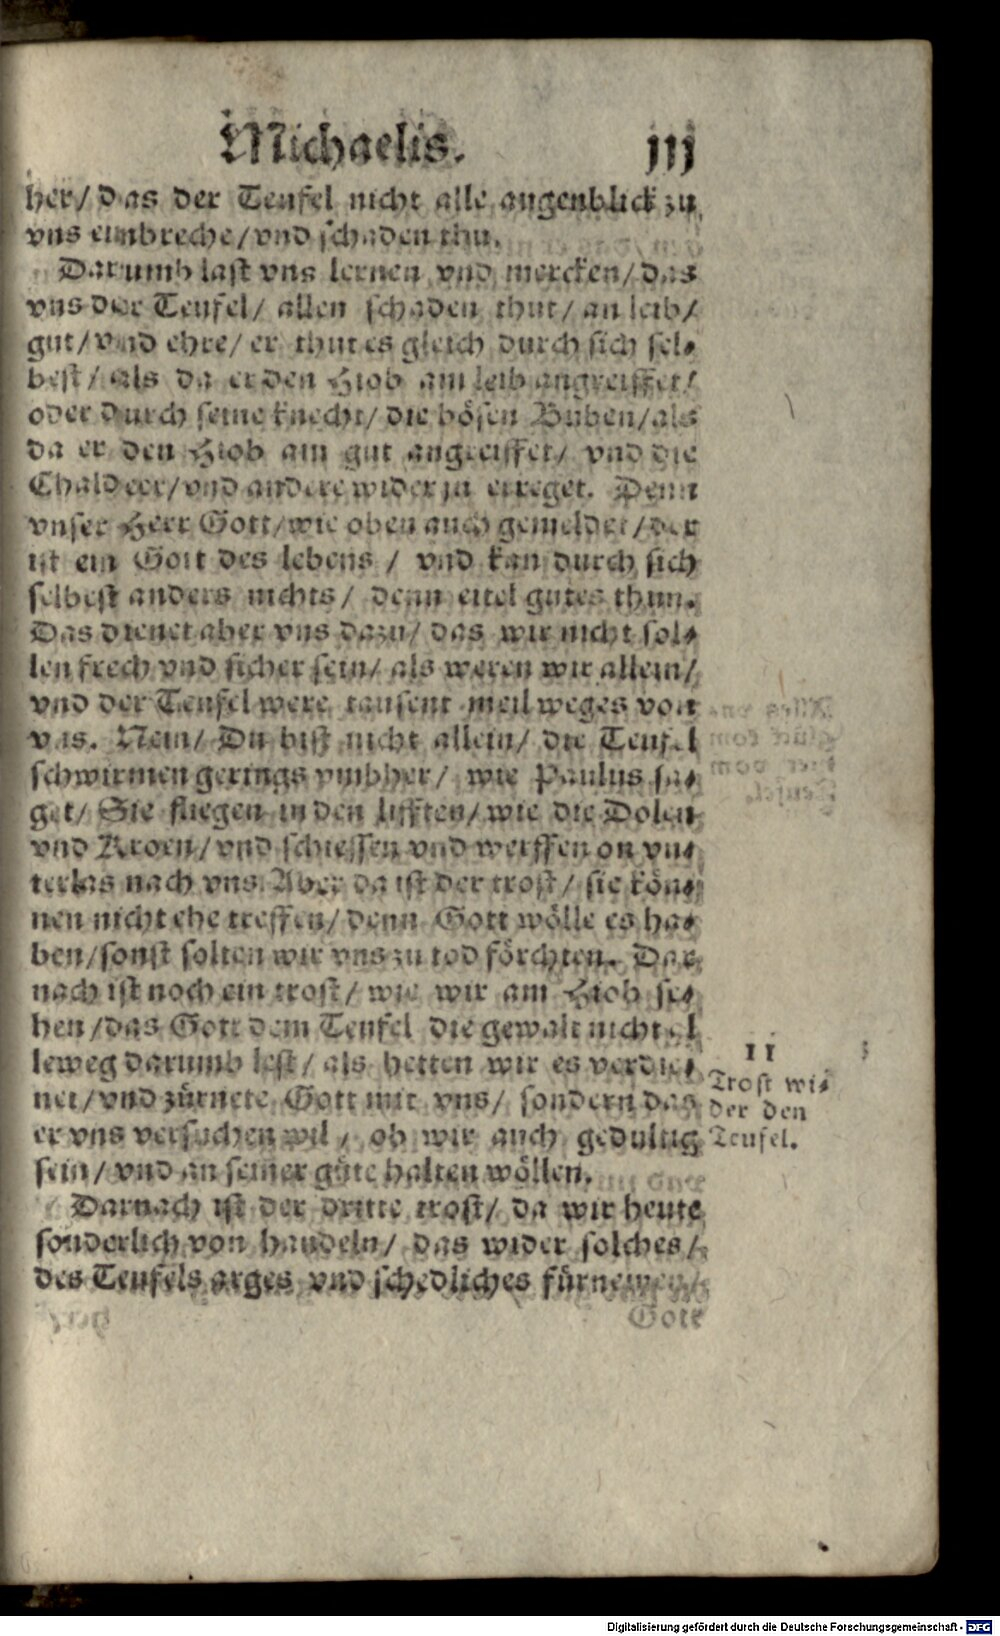 Michaelis. iij
her/ das der Teufel nicht alle augenblick zu
vns einbreche/ vnd schaden thu.
Darumb last vns lernen vnd mercken/ das
vns der Teufel/ allen schaden thut/ an leib/
gut/ vnd ehre/ er thut es gleich durch sich sel-
best/ als da er den Hiob am leib angreiffet/
oder durch seine knecht/ die bösen Buben/ als
da er den Hiob am gut angreiffet/ vnd die
Chaldeer/ vnd andere wider jn erreget. Denn
vnser Herr Gott/ wie oben auch gemeldet/ der
ist ein Gott des lebens / vnd kan durch sich
selbest anders nichts/ denn eitel gutes thun.
Das dienet aber vns dazu/ das wir nicht sol-
len frech vnd sicher sein/ als weren wir allein/
vnd der Teufel were tausent meil weges von
vns. Nein/ Du bist nicht allein/ die Teufel
schwirmen gerings vmbher/ wie Paulus sa-
get/ Sie fliegen in den lüfften/ wie die Dolen
vnd Kroen/ vnd schiessen vnd werffen on vn-
terlas nach vns. Aber da ist der trost/ sie kön-
nen nicht ehe treffen/ denn Gott wölle es ha-
ben/ sonst solten wir vns zu tod förchten. Dar
nach ist noch ein trost/ wie wir am Hiob se-
hen/ das Gott dem Teufel die gewalt nicht al
leweg darumb lest/ als hetten wir es verdie-
net/ vnd zürnete Gott mit vns/ sondern das
er vns versuchen wil/ ob wir auch gedultig
sein/ vnd an seiner güte halten wöllen.
Darnach ist der dritte trost/ da wir heute
sonderlich von handeln/ das wider solches/
des Teufels arges vnd schedliches fürnemen/
Gott
11
Trost wi-
der den
Teufel.
Digitalisierung gefördert durch die Deutsche Forschungsgemeinschaft - DFG